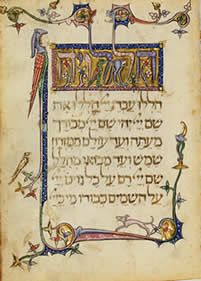 הללויה
הללו עבדי יי הללו את
שם יי יהי שם יי מבורך
מעתה ועד עולם ממזרח
שמש ועד מבואו מהלל
שם יי רם על כל גוים יי
על השמים כבודו מי